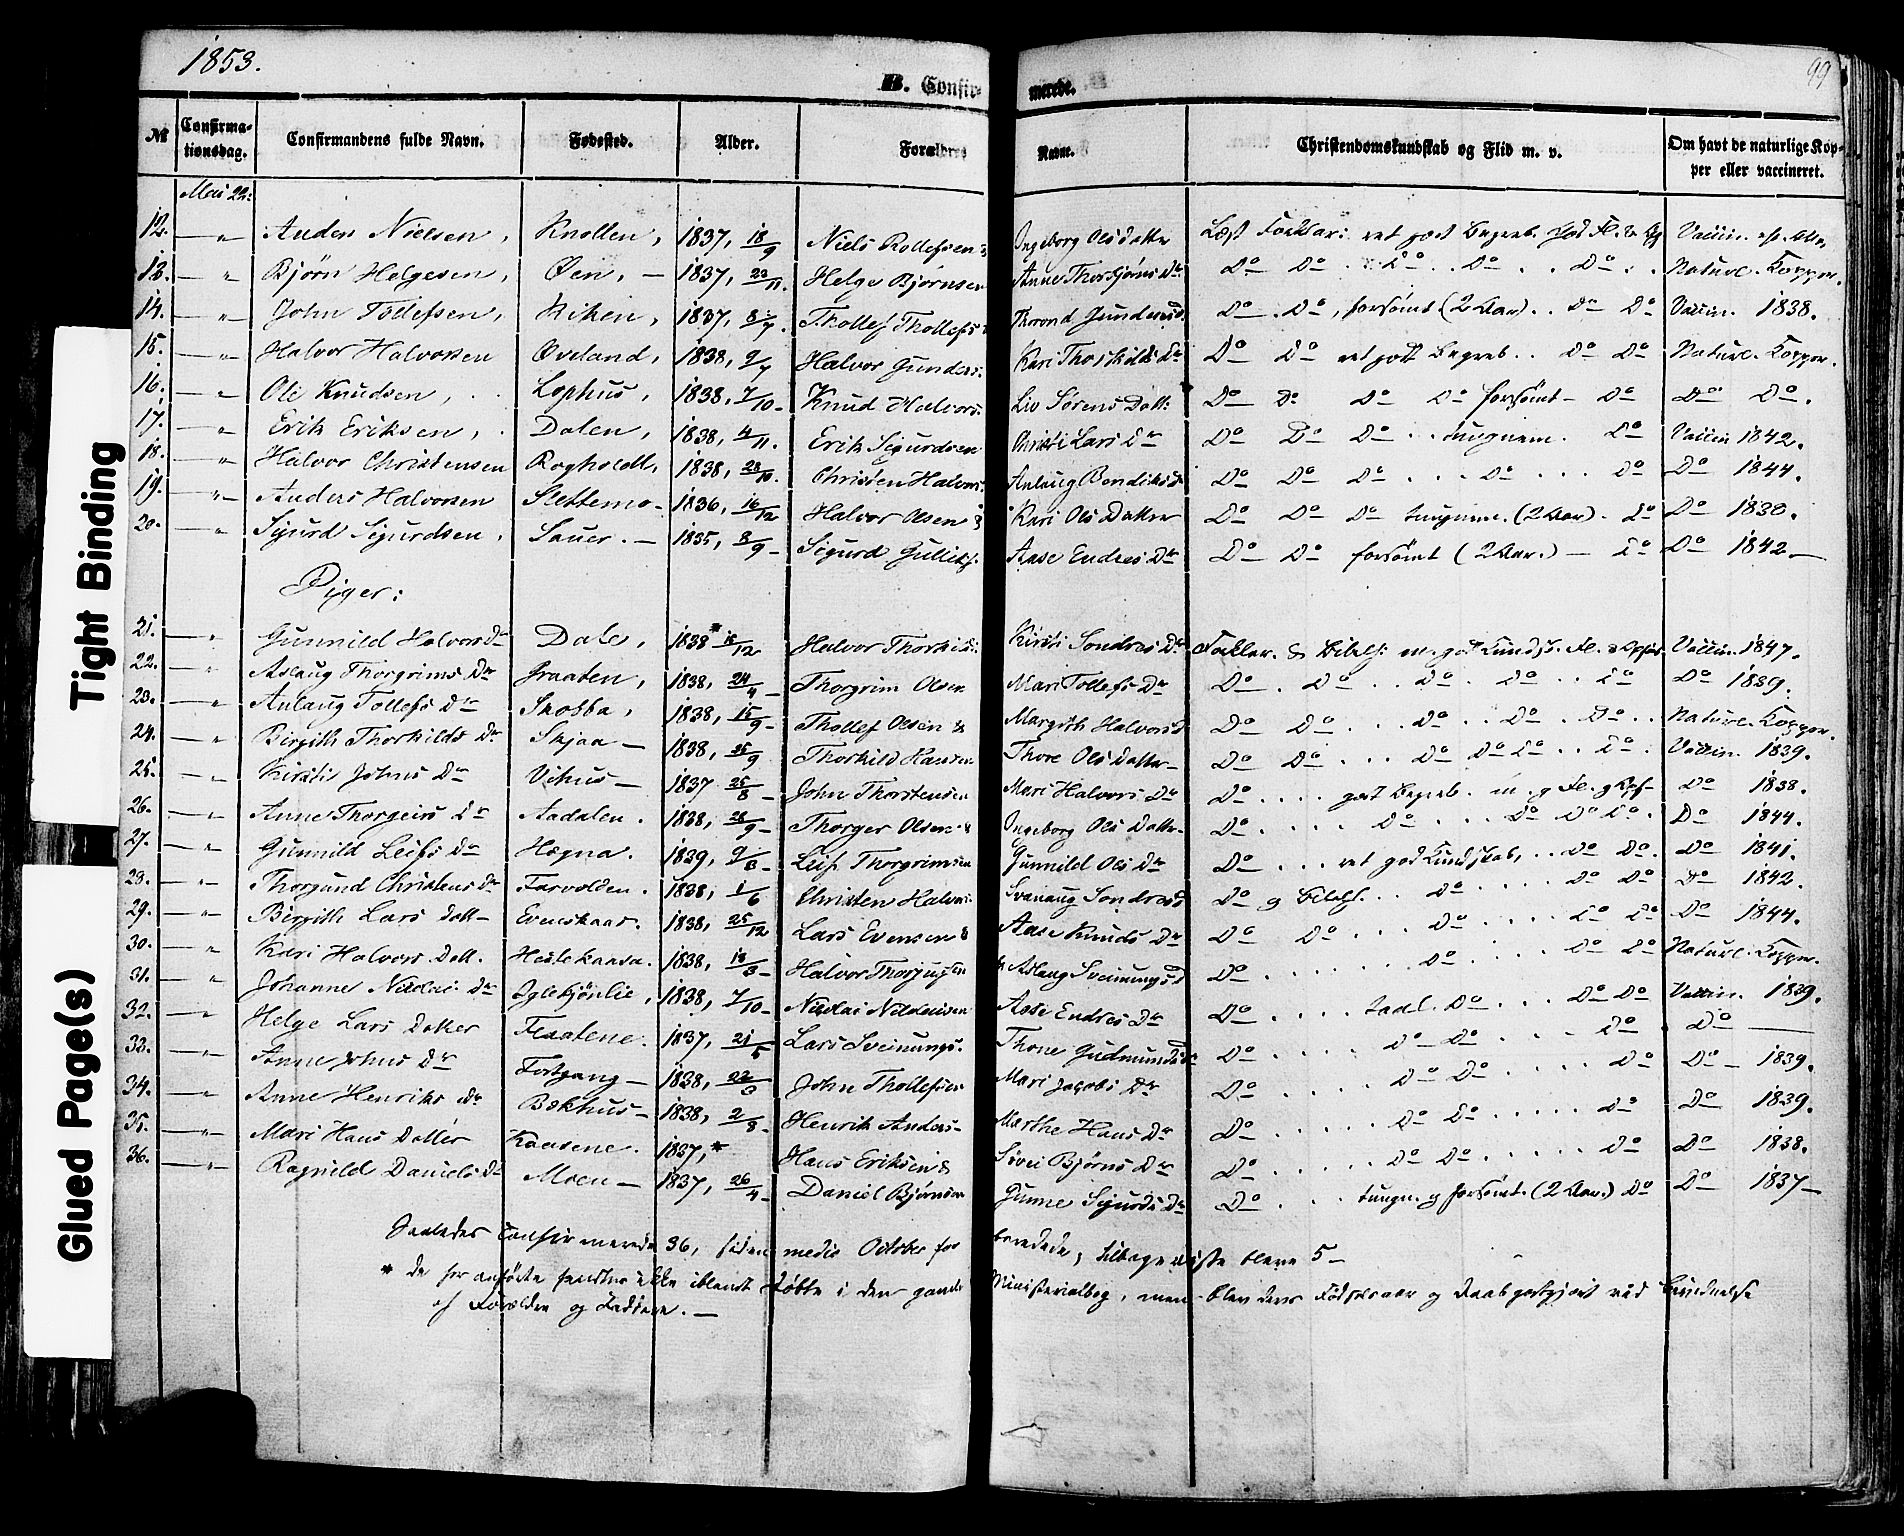 1853.
99
B. Confir- merede.
№ Confirma-tionsdag. Confirmandens fulde Navn. Fødested. Alder. Forældres Navne. Christendomskundskab og Flid m. v. Om havt de naturlige Kop-per eller vaccineret.
Mai 22:
12. — " Anders Nielsen, Knollen, 1837, 18/9 Niels Rollefsen & Ingeborg Ols Datter Læst Forklar: ret godt Begreb. god Fl. & Vaccin.
13. — " Bjørn Helgesen, Øen, — 1837, 22/11. Helge Bjørnsen Anne Thorbjørns Dr Do Do Do Do Do Naturl. Kopper.
14. — " John Tollefsen, Kiken, 1837, 8/7. Thollef Thollefs Thorond Gunders D. Do Do, forsømt (2 Aar) Do Do Vaccin. 1838.
15. — " Halvor Halvorsen Øveland, 1838, 9/7 Halvor Gunders: Kari Thorkilds Dr Do Do ret godt Begreb Do Do Naturl. Kopper.
16. " Ole Knudsen, Lophus, 1838, 7/10 – Knud Halvors: Liv Sørens Datt: Do Do Do Do forsømt – Do Do Do.
17. — " Erik Eriksen, Dalen, 1838, 4/11. Erik Sigurdsen Christi Lars Dr Do Do Do tungnem. Do Vaccin 1842.
18. — " Halvor Christensen Rogholdt, 1838, 28/10. Christen Halvors: Anlaug Bendiks D Do Do Do Do Do Do 1844.
19. — " Anders Halvorsen Slettemo – 1836, 16/12 Halvor Olsen & Kari Ols Datter Do Do Do tungnem. (2 Aar). Do Do 1838.
20. — " Sigurd Sigurdsen, Sauer. — 1835, 8/9 – Sigurd Gulliks. Aase Endres Dr Do Do forsømt (2 Aar.) — Do Do 1842 —
Piger:
21. — " Gunnild Halvors Dr Dale, 1838* 18/12 Halvor Thorkils: Kirsti Sondres Dr Forklar. & Bibelh: m. god Kundsk. Fl. & Vaccin. 1847.
22. — " Aslaug Thorgrims Dr Graaten, 1838, 24/4 – Thorgrim Olsen Mari Tollefs Dr Do. Do Do Do Do Do 1839.
23. — " Anlaug Tollefs Dr Skobba, 1838, 15/9 – Thollef Olsen & Margith Halvors D Do Do Do Do Do Naturl. Kopper.
24. — " Birgith Thorkilds Dr Skjaa — 1838, 25/9 Thorkild Hansen Thore Ols Datter – Do Do Do Do Do Do Vaccin. 1839.
25. — " Kirsti Johns Dr Vihus — 1837 25/8 – John Thorstensen Mari Halvors Dr Do godt Begreb. m. g Fl. g Do 1838.
26. — " Anne Thorgeirs Dr Aadalen. 1838, 28/9 – Thorger Olsen & Ingeborg Ols Datter – Do Do Do Do Do. Do 1844.
27. — " Gunnild Leifs Dr Hægna. 1839, 9/3 – Leif Thorgrimsen Gunnild Ols Dr Do ret god Kundskab, Do Do. Do 1841.
28. — " Thorgund Christens Dr Farvolden. 1838, 1/6 Christen Halvors Svanaug Sondres D Do g Bibelh. Do Do Do Do 1842.
29. — " Birgith Lars Datt – Evenskaas. 1838, 25/12 Lars Evensen & Aase Knuds Dr Do Do Do Do Do Do 1844.
30. — " Kari Halvors Datt. Heslekaasa. 1838, 13/3 – Halvor Thorjusen & Aslaug Sveinungs D Do Do Do Do Naturl. Kopper.
31. — " Johanne Nicolai Dr Iglekjønlie, 1838, 7/10 – Nicolai Nicolaisen Aase Endres Dr Do tadl. Do Do Do Vaccin. 1839.
32. — " Helge Lars Datter Flaatene. 1837, 21/5 Lars Sveinungs. Thone Gudmunds Dr Do Do Do Do Do —
33. — " Anne Johns Dr Fortgang — 1838, 22/3 John Thollefsen Mari Jacobs Dr Do Do Do Do Do – 1839.
34. — " Anne Henriks Dr Bækhus — 1838, 2/8 – Henrik Anders – Marthe Hans Dr Do Do Do Do Do 1839.
35. — " Mari Hans Datter Kaasene. 1837, * Hans Eriksen & Sivei Bjørns Dr Do Do Do Do Do 1838.
36. — " Ragnild Daniels Dr Moen — 1837, 26/4 – Daniel Bjørnsen Gunne Sigurds Dr Do tungn. g forsømt. (2 Aar.) Do Do 1837 —
Saaledes Confirmerede 36, siden medio October forberedede, tilbageviste bleve 5 –
* De her anførte fandtes ikke iblandt Døbte i den gamle Ministerialbog, men blev deres Fødselsaar og Daab godtgjort ved
af Forældre og Faddere. —
Tight Binding
Glued Page(s)